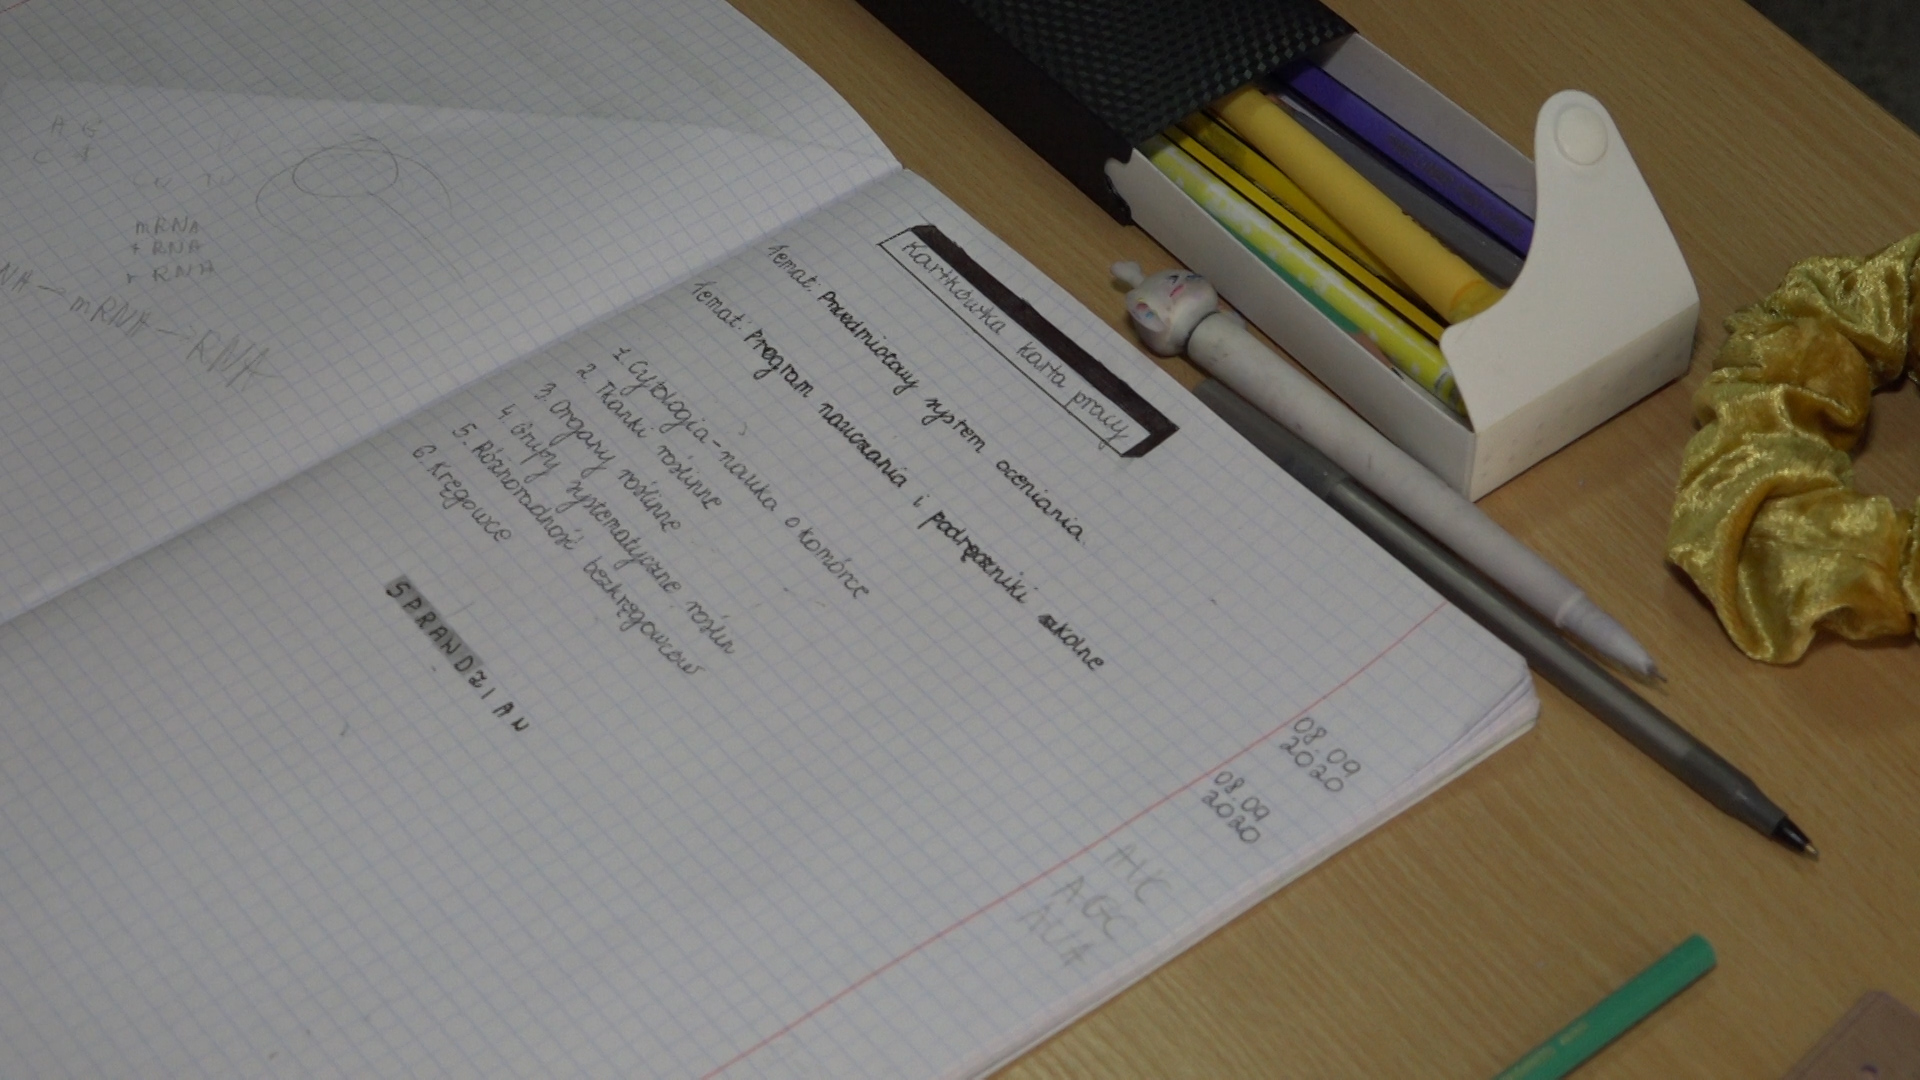 A G
mRNA
+ RNA
r RNA
NA → mRNA → RNA
Kartkówka karta pracy
Temat: Przedmiotowy system oceniania.
Temat: Program nauczania i podręczniki szkolne
1. Cytologia - nauka o komórce
2. Tkanki roślinne
3. Organy roślinne
4. Grupy systematyczne roślin
5. Różnorodność bezkręgowców
6. Kręgowce
SPRAWDZIAN
08.09
2020
08.09
2020
AUC
AGC
AUA